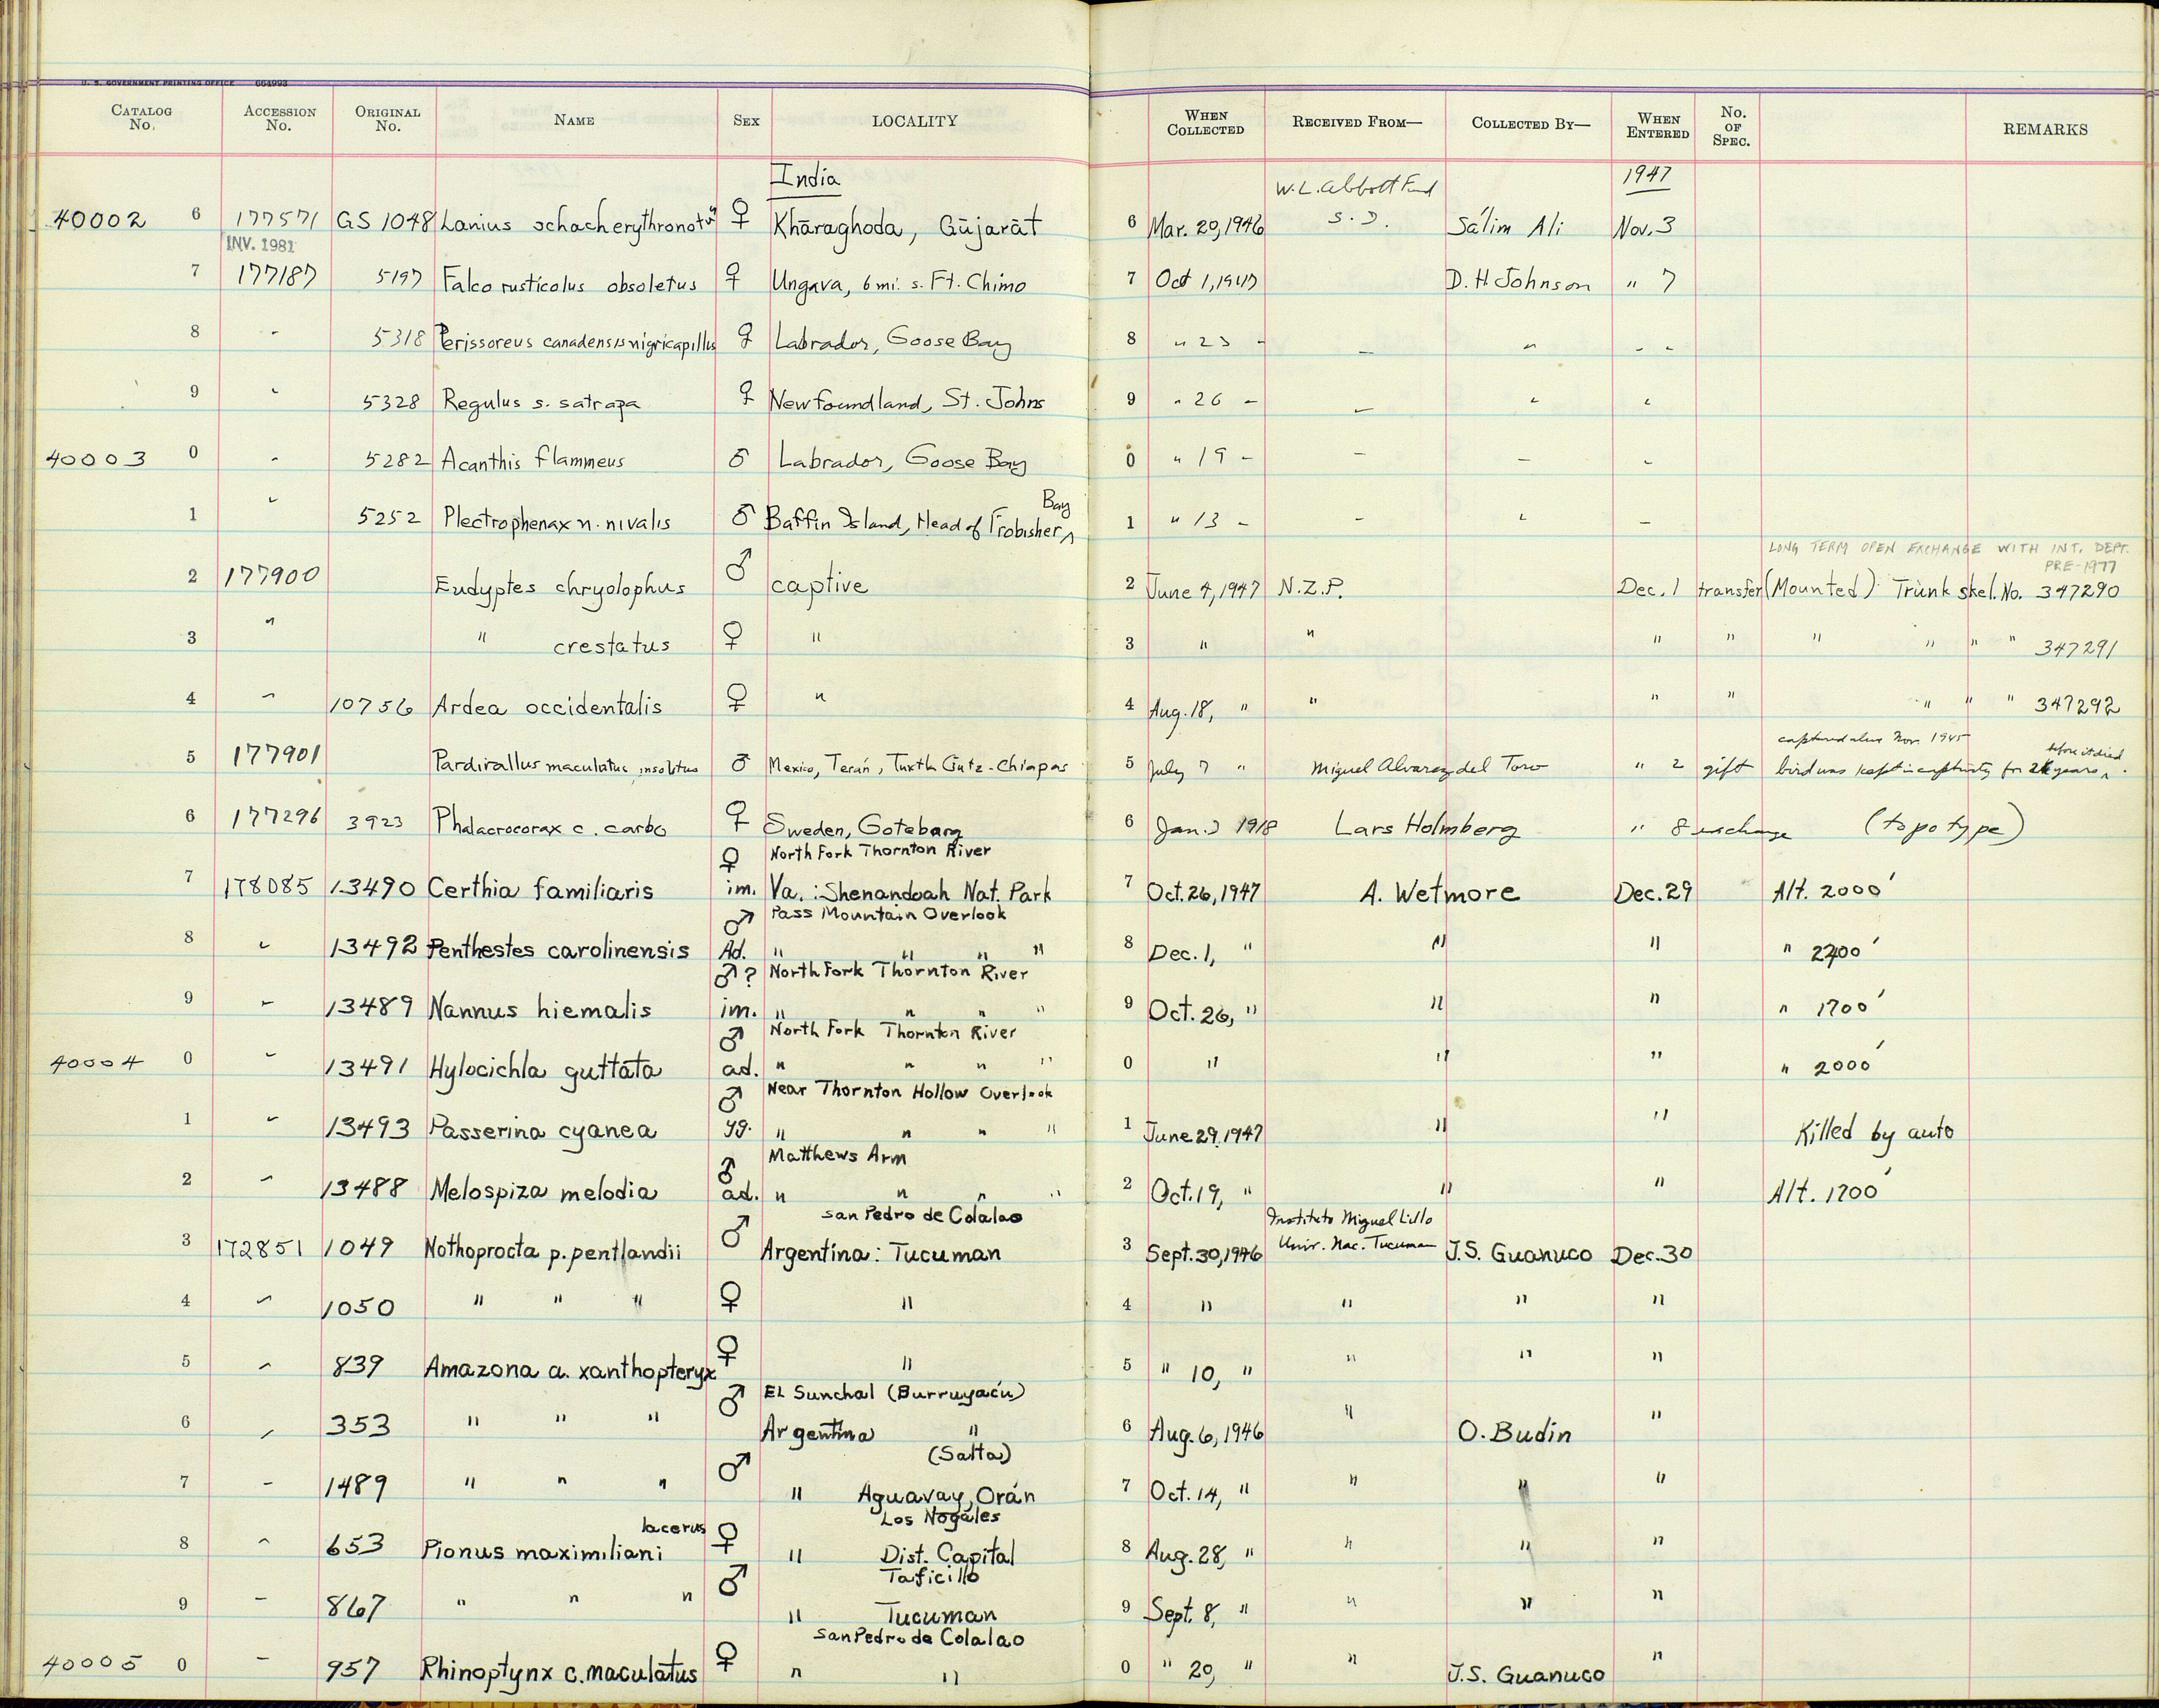 U. S. GOVERNMENT PRINTING OFFICE 664993
CATALOG No. ACCESSION No. ORIGINAL No. NAME SEX LOCALITY WHEN COLLECTED RECEIVED FROM— COLLECTED BY— WHEN ENTERED No. OF SPEC. REMARKS
India W. L. Abbott Fund 1947
40002 6 177571 GS 1048 Lanius schach erythronotus ♀ Khāraghoda, Gūjarāt 6 Mar. 20, 1946 S. D. Sálim Ali Nov. 3
INV. 1981
7 177187 5197 Falco rusticolus obsoletus ♀ Ungava, 6 mi. s. Ft. Chimo 7 Oct 1, 1947 D. H Johnson " 7
8 " 5318 Perissoreus canadensis nigricapillus ♀ Labrador, Goose Bay 8 " 23 - — " " "
9 " 5328 Regulus s. satrapa ♀ Newfoundland, St. Johns 9 " 26 - — " "
40003 0 " 5282 Acanthis flammeus ♂ Labrador, Goose Bay 0 " 19 - — — "
Bay
1 " 5252 Plectrophenax n. nivalis ♂ Baffin Island, Head of Frobisher ^ 1 " 13 - — " —
LONG TERM OPEN EXCHANGE WITH INT. DEPT.
PRE-1977
2 177900 Eudyptes chryolophus ♂ captive 2 June 4, 1947 N.Z.P. Dec. 1 transfer (Mounted) Trunk skel. No. 347290
3 " " crestatus ♀ " 3 " " " " " " " " 347291
4 " 10756 Ardea occidentalis ♀ " 4 Aug. 18, " " " " " " " 347292
captured alive Nov. 1945 before it died
5 177901 Pardirallus maculatus insolitus ♂ Mexico, Terán, Tuxtla Gutz - Chiapas 5 July 7 " Miguel Alvarez del Toro " 2 gift bird was kept in captivity for 2 years ^ .
6 177296 3923 Phalacrocorax c. carbo ♀ Sweden, Goteborg 6 Jan. 1918 Lars Holmberg " 8 exchange (topotype)
♀ North Fork Thornton River
7 178085 13490 Certhia familiaris im. Va. : Shenandoah Nat. Park 7 Oct. 26, 1947 A. Wetmore Dec. 29 Alt. 2000'
♂ Pass Mountain Overlook
8 " 13492 Penthestes carolinensis Ad. " " " " 8 Dec. 1, " " " " 2400'
♂? North Fork Thornton River
9 " 13489 Nannus hiemalis im. " " " " 9 Oct. 26, " " " " 1700'
♂ North Fork Thornton River
40004 0 " 13491 Hylocichla guttata ad. " " " " 0 " " " " 2000'
♂ Near Thornton Hollow Overlook
1 " 13493 Passerina cyanea yg. " " " " 1 June 29, 1947 " " Killed by auto
♂ Matthews Arm
2 " 13488 Melospiza melodia ad. " " " " 2 Oct. 19, " " " Alt. 1700'
San Pedro de Colalao Instituto Miguel Lillo
3 172851 1049 Nothoprocta p. pentlandii ♂ Argentina: Tucuman 3 Sept. 30, 1946 Univ. Nac. Tucuman J. S. Guanuco Dec. 30
4 " 1050 " " " ♀ " 4 " " " "
5 " 839 Amazona a. xanthopteryx ♀ " 5 " 10, " " " "
♂ El Sunchal (Burruyacú)
6 " 353 " " " Argentina " 6 Aug. 6, 1946 " O. Budin "
(Salta)
7 " 1489 " " " ♂ " Aguavay, Orán 7 Oct. 14, " " " "
lacerus Los Nogales
8 " 653 Pionus maximiliani ♀ " Dist. Capital 8 Aug. 28, " " " "
Taficillo
9 " 867 " " " ♂ " Tucuman 9 Sept. 8, " " " "
San Pedro de Colalao
40005 0 " 957 Rhinoptynx c. maculatus ♀ " " 0 " 20, " " J. S. Guanuco "